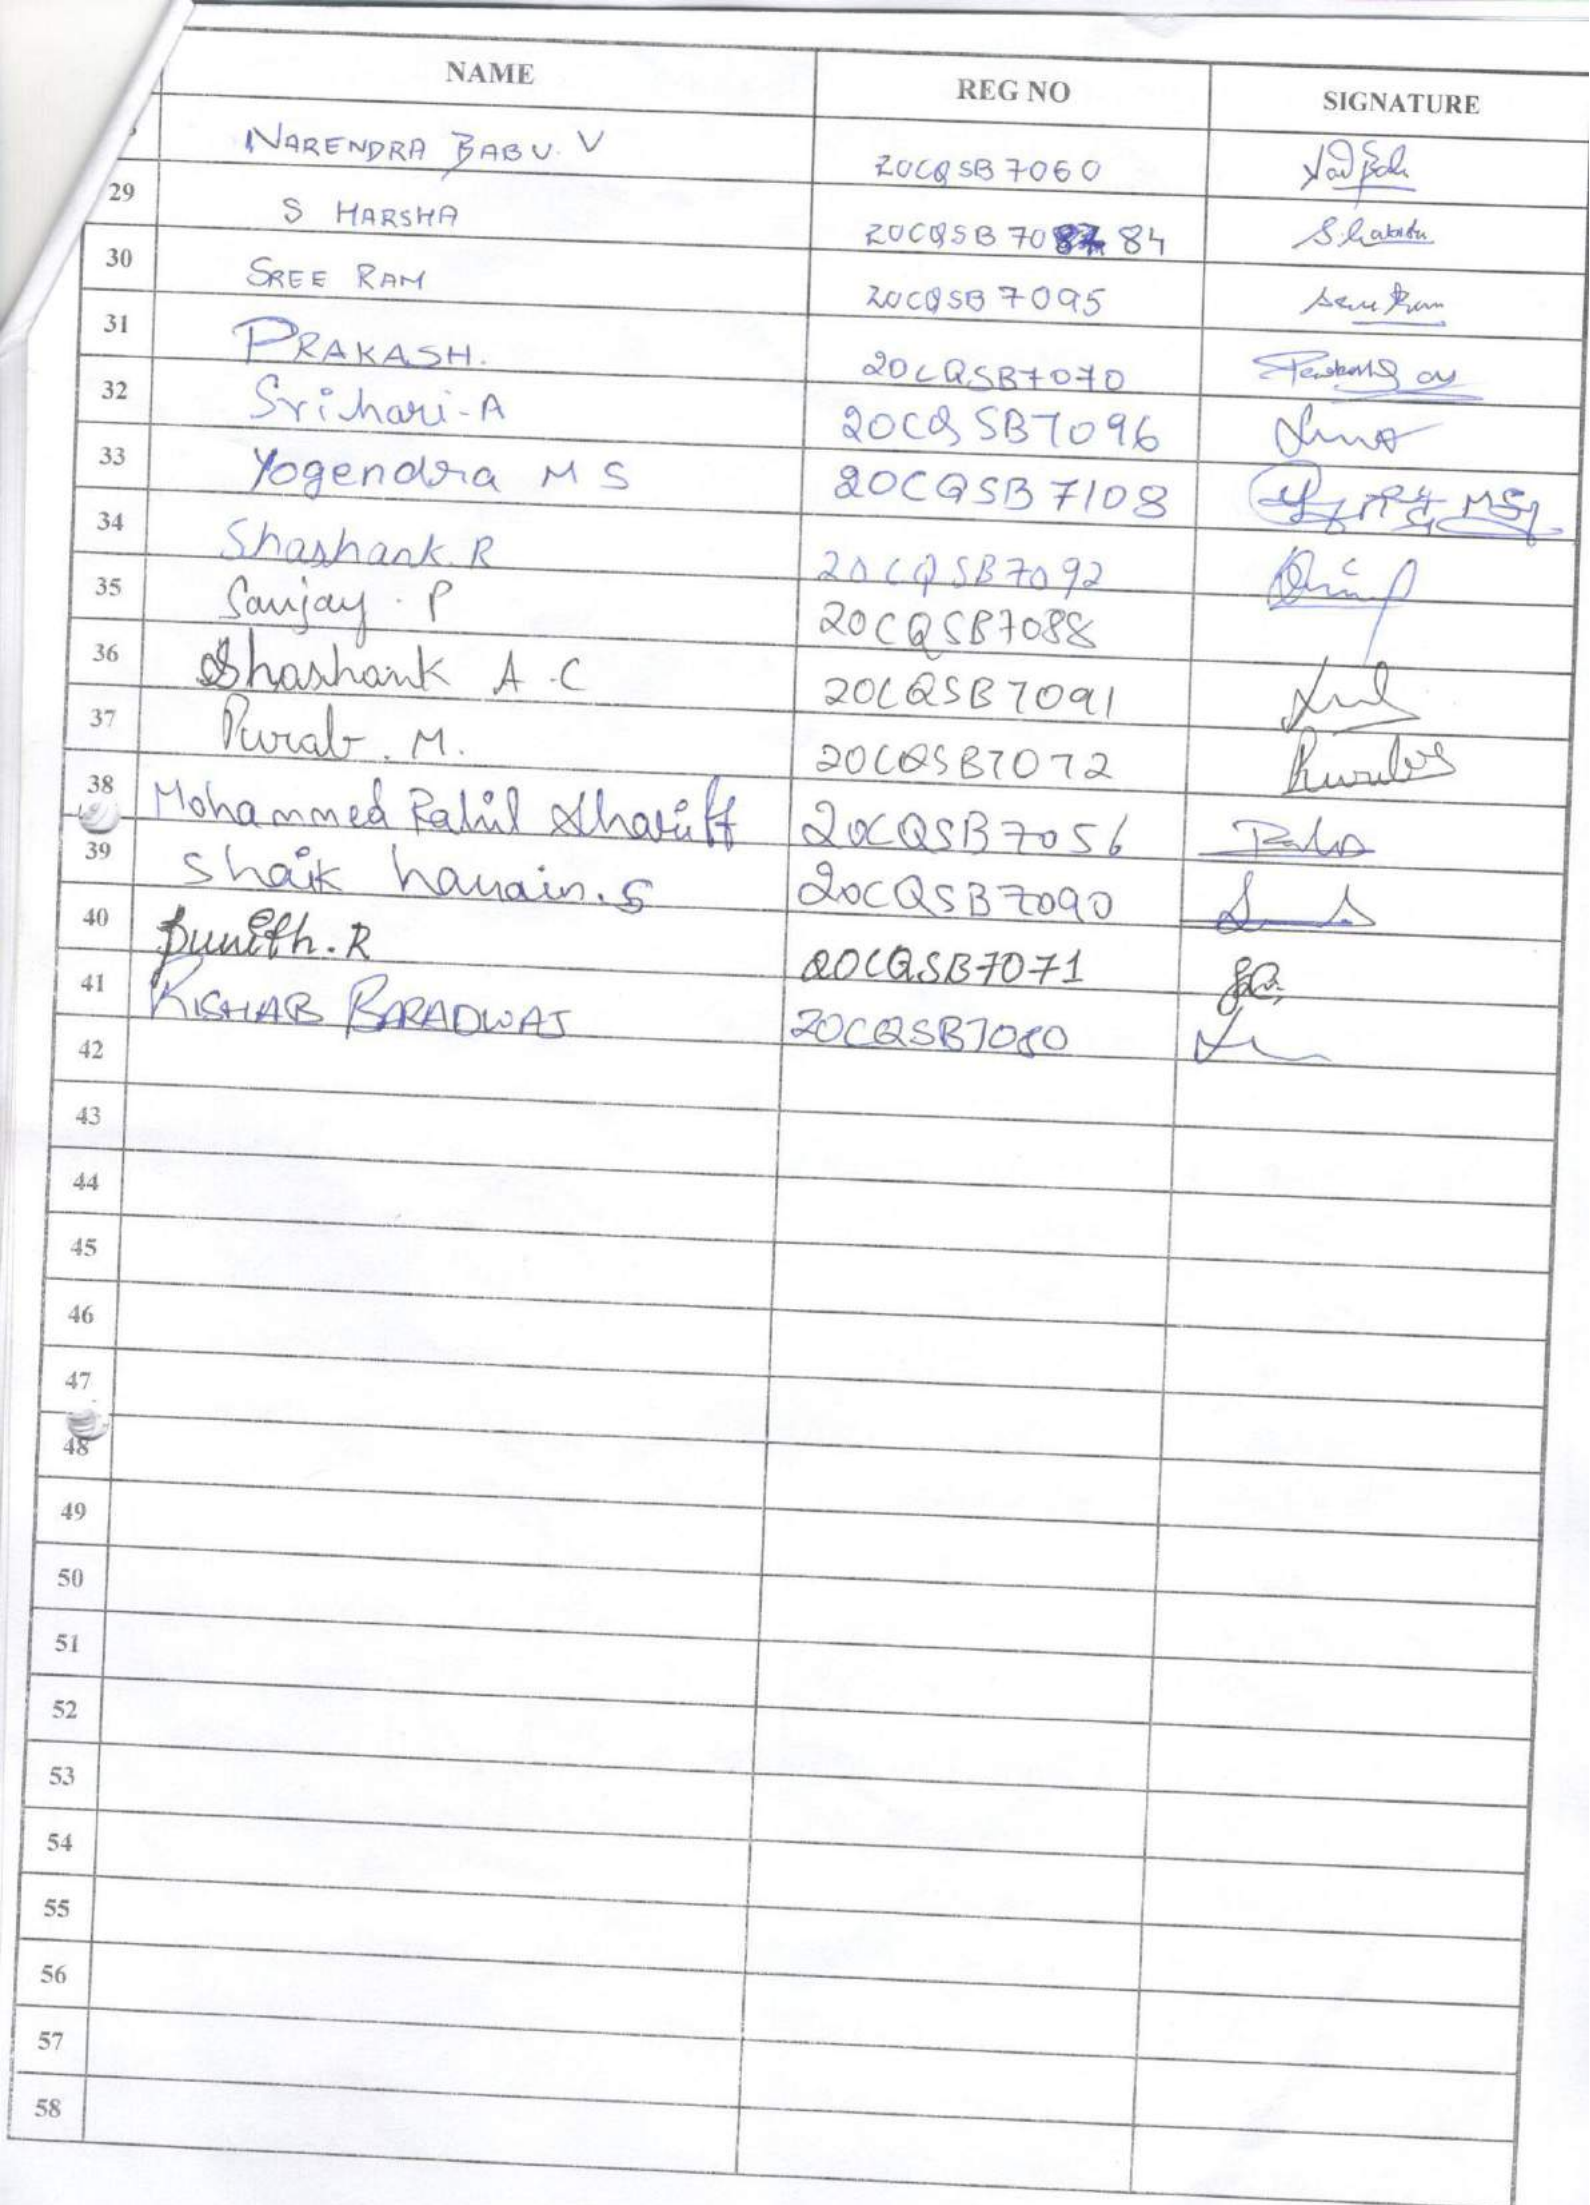 NAME REG NO SIGNATURE
NARENDRA BABU. V 20CQSB7060
29 S HARSHA 20CQSB70 84
30 SREE RAM 20CQSB7095 Sree Ram
31 PRAKASH. 20CQSB7070
32 Srihari-A 20CQSB7096
33 Yogendra M S 20CQSB7108
34 Shashank. R 20CQSB7092
35 Sanjay. P 20CQSB7088
36 Shashank A.C 20CQSB7091
37 Purab. M. 20CQSB7072
38 Mohammed Rahil Shariff 20CQSB7056
39 Shaik hanain. S 20CQSB7090
40 Punith. R 20CQSB7071
41 RISHAB BARADWAJ 20CQSB7080
42
43
44
45
46
47
48
49
50
51
52
53
54
55
56
57
58